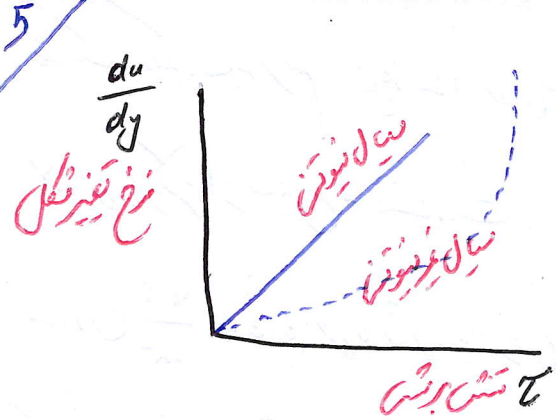 5
du
dy
نرخ تغییر شکل
سیال نیوتنی
سیال غیر نیوتنی
تنش برشی τ